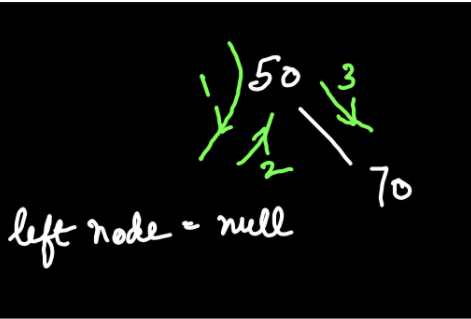 1 50 3
2
70
left node = null